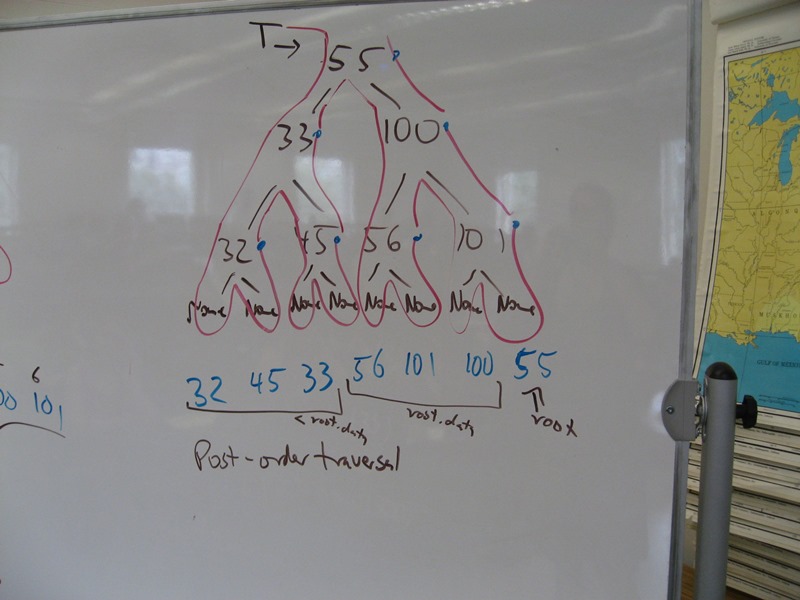 T → 55
33 100
32 45 56 101
None None None None None None None None
6
101
32 45 33 56 101 100 55
< root.data root.data root
Post-order traversal
GULF OF MEXICO